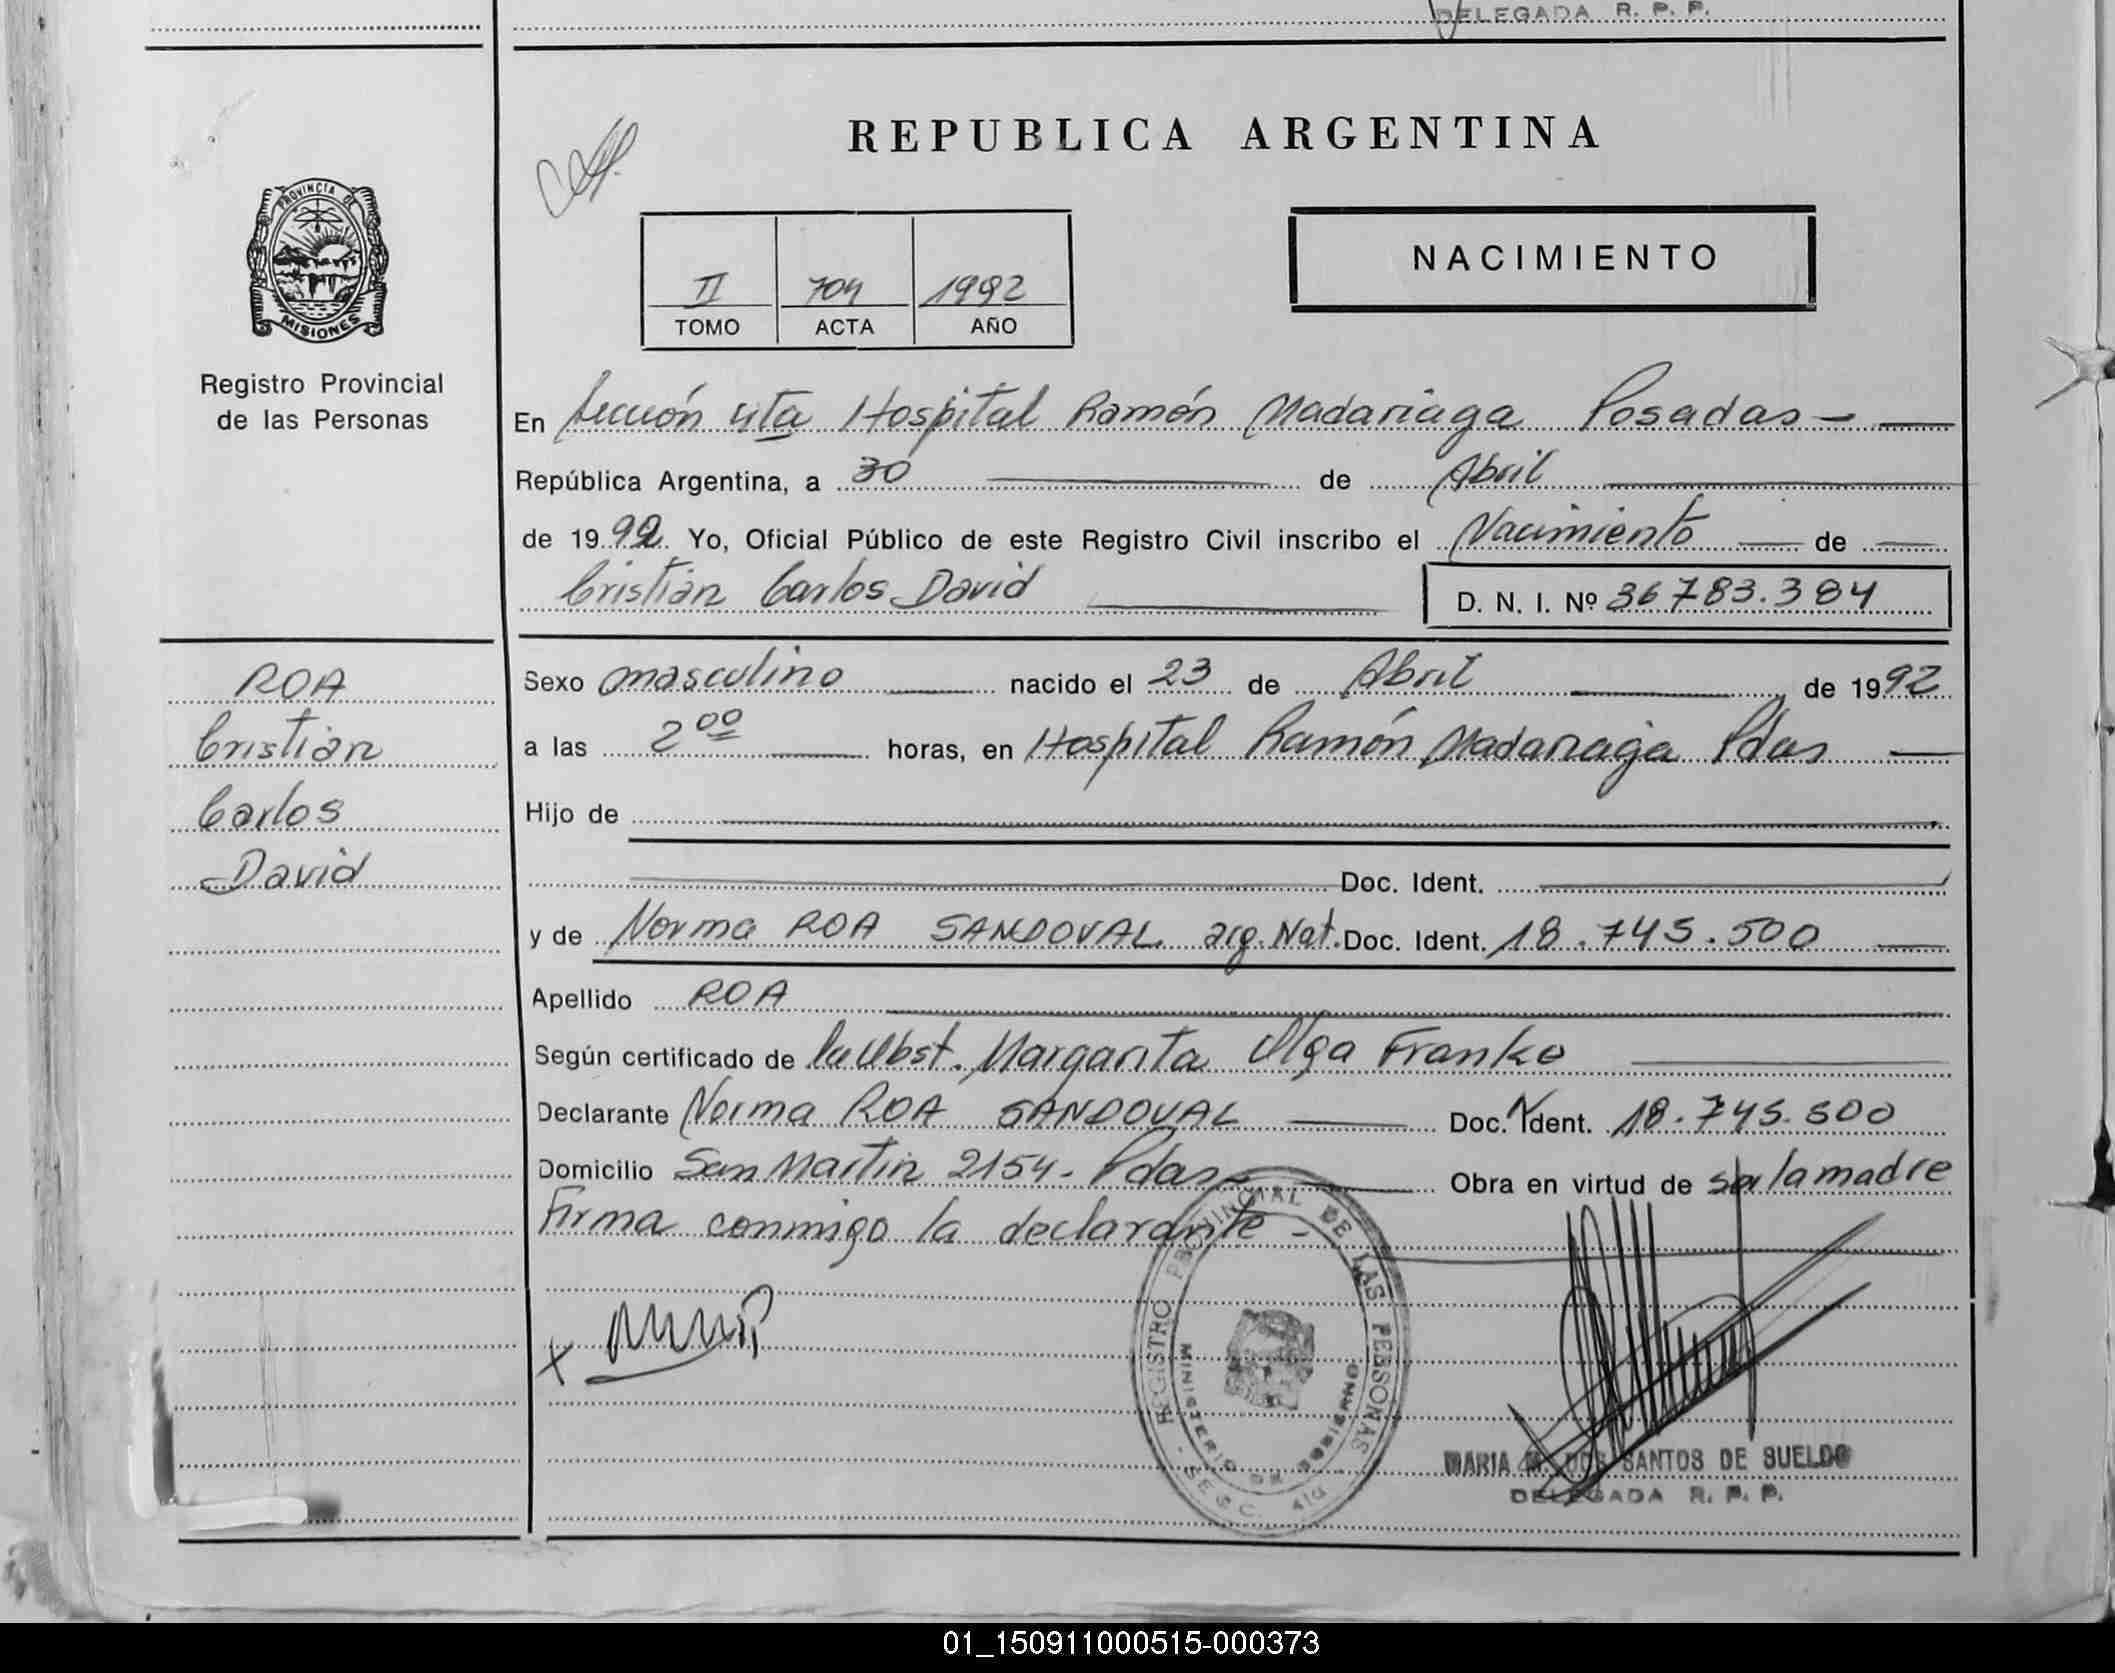 DELEGADA R. P. P.
REPUBLICA ARGENTINA
PROVINCIA DE
MISIONES
Registro Provincial
de las Personas
II 704 1992
TOMO ACTA AÑO
NACIMIENTO
En Sección 4ta Hospital Ramón Madariaga Posadas -
República Argentina, a 30 de Abril
de 1992 Yo, Oficial Público de este Registro Civil inscribo el Nacimiento de
Cristian Carlos David D. N. I. Nº 36783.384
ROA
Cristian
Carlos
David
Sexo masculino nacido el 23 de Abril de 1992
a las 2 00 horas, en Hospital Ramón Madariaga Pdas
Hijo de
Doc. Ident.
y de Norma ROA SANDOVAL arg. Nat. Doc. Ident. 18.745.500
Apellido ROA
Según certificado de la Obst. Margarita Olga Franke
Declarante Norma ROA SANDOVAL Doc. Ident. 18.745.500
Domicilio San Martin 2154 - Pdas Obra en virtud de ser la madre
Firma conmigo la declarante -
REGISTRO PROVINCIAL DE LAS PERSONAS
MINISTERIO DE GOBIERNO
MARIA M. DOS SANTOS DE SUELDO
DELEGADA R. P. P.
01_150911000515-000373